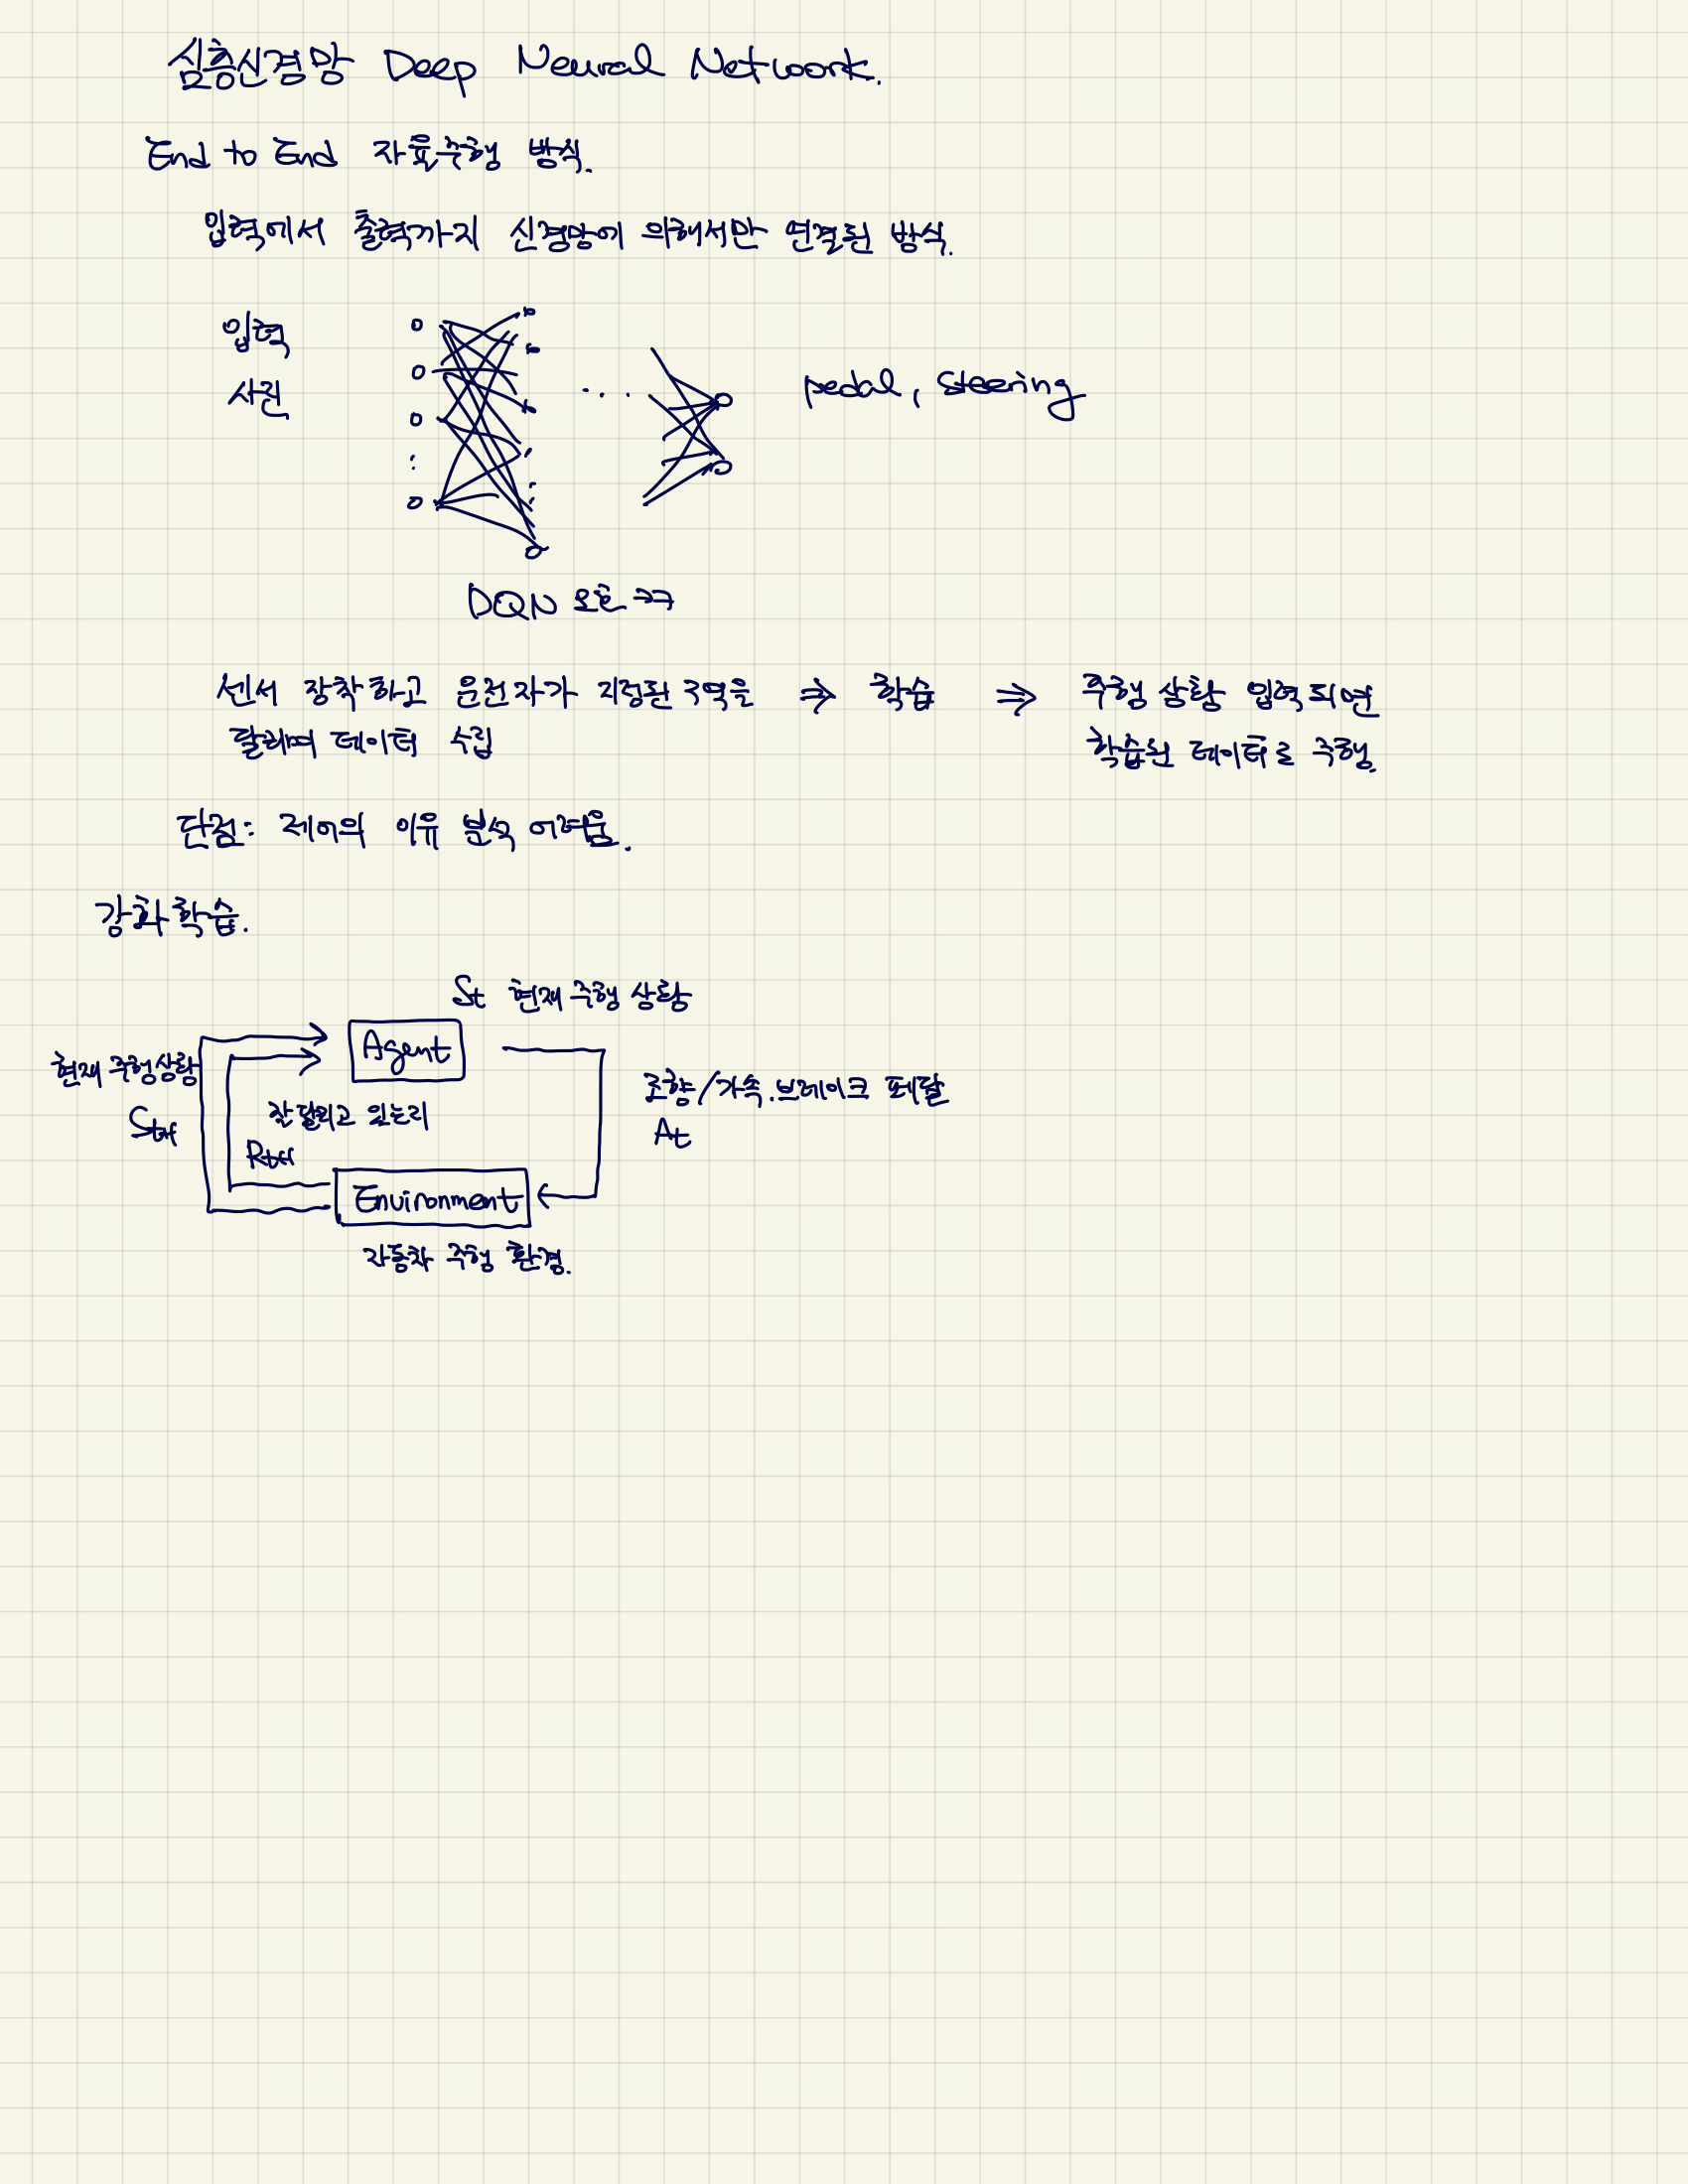 심층신경망 Deep Neural Network.
End to End 자율주행 방식.
입력에서 출력까지 신경망에 의해서만 연결된 방식.
입력
사진
pedal, steering
DQN
센서 장착하고 운전자가 지정된 구역을 ⇒ 학습 ⇒ 주행 상황 입력되면
달리며 데이터 수집
학습된 데이터로 주행.
단점: 제어의 이유 분석 어려움.
강화학습.
St 현재 주행 상황
Agent
현재 주행상황
St+1
잘 달리고 있는지
Rt+1
조향/가속.브레이크 페달
At
Environment
자동차 주행 환경.